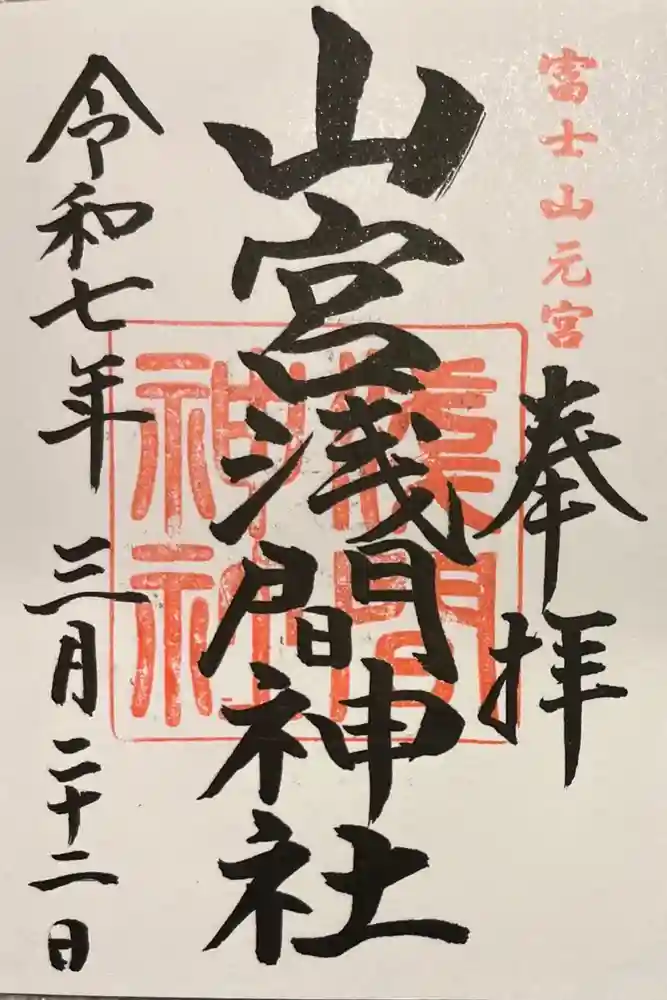 富士山元宮
奉拝
山宮浅間神社
浅間
神社
令和七年三月二十二日